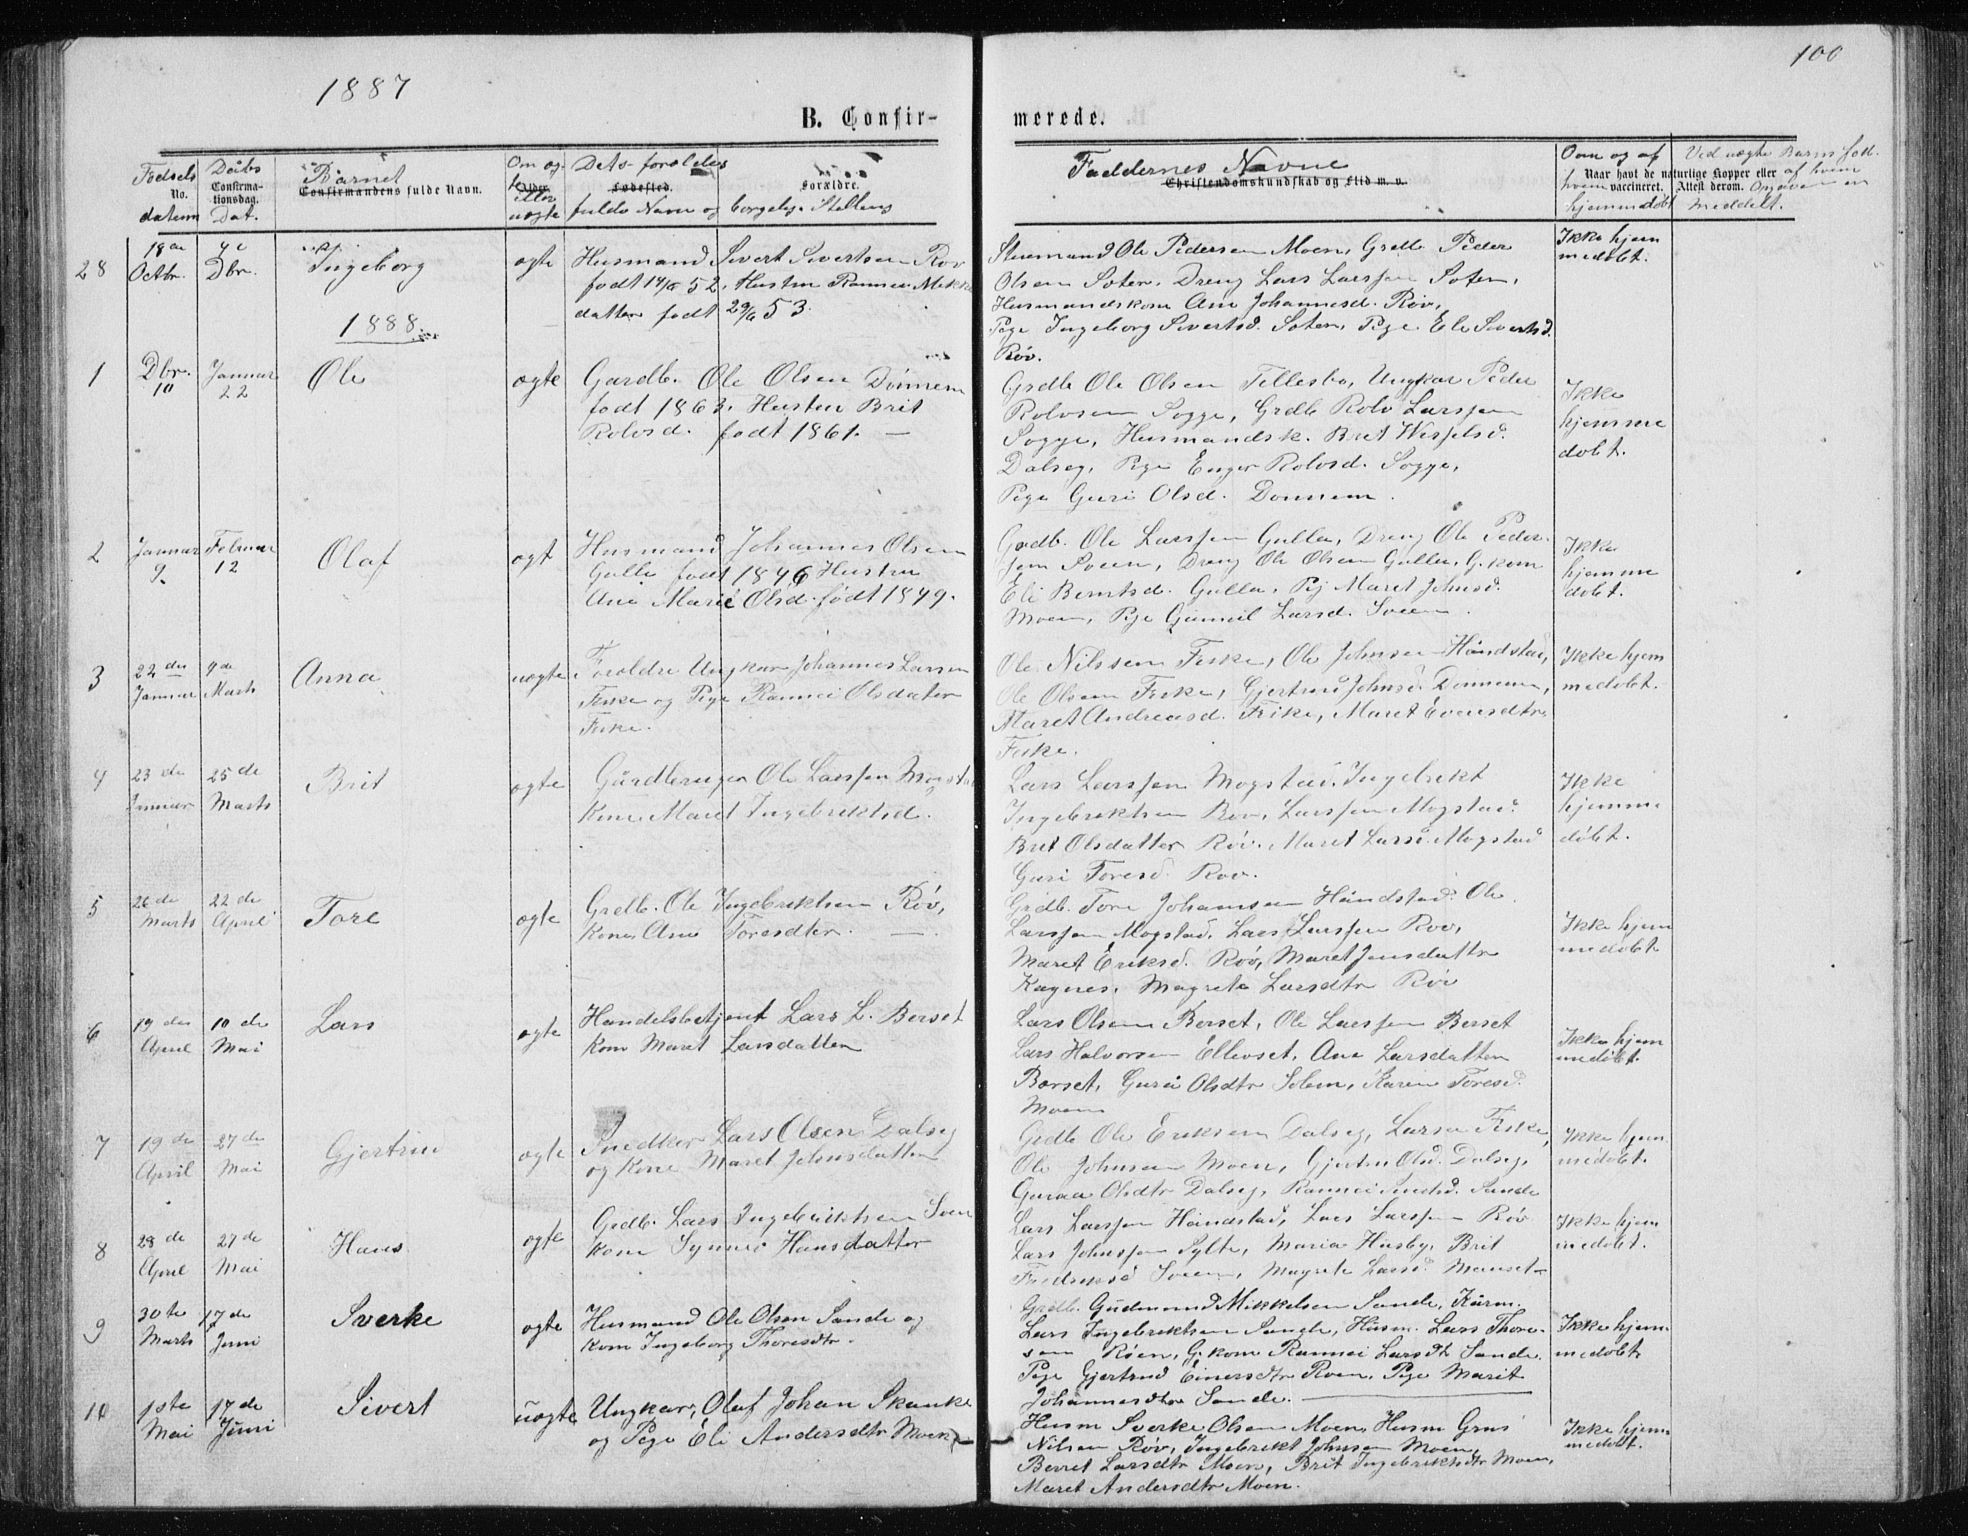 1887
100
B. Confir-
merede.
Fødsels
No.
datum
Daabs
Confirma-
tionsdag.
Dat.
Barnet
Confirmandens fulde Navn.
Om æg-
te
Alder.
eller
uægte
Dets forældres
Fødested.
Forældre.
fulde Navn og borgelig Stilling
Faddernes Navne
Christendomskundskab og Flid m. v.
Om og af
Naar havt de naturlige Kopper eller
hvem vaccineret. Attest derom.
hjemmedøbt
Ved uægte Barns fød.
af hvem
Opgaven er
meddelt.
28
18de
Octbr.
4de
Dbr.
Ingeborg
ægte
Husmand Sivert Sivertsen Røv
født 52. Hustru Rannei Mikk
datter født 29/6 53.
Stuemand Ole Pedersen Moen, Grdb Peder
Olsen Soten, Dreng Lars Larssen Soten,
Husmandskone Ane Johannesd. Røv,
Pige Ingeborg Sivertsd. Soten, Pige Eli Sivertsd.
Røv.
Ikke hjem
medøbt.
1888.
1
Dbr.
10
Januar
22
Ole
ægte
Gardb. Ole Olsen Dønnem
født 1863. Hustru Brit
Rolvsd. født 1861. —
Grdb Ole Olsen Tellesbø, Ungkar Peder
Rolvsen Sogge, Grdb Rolv Larssen
Sogge, Husmandsk. Brit Wesselsd.
Dalseg, Pige Enger Rolvsd. Sogge,
Pige Guri Olsd. Dønnem.
Ikke
hjemme
døbt.
2
Januar
9.
Februar
12
Olaf
ægt
Husmand Johannes Olsen
Gulla født 1846 Hustru
Ane Marie Olsd. født 1849.
Gadb. Ole Larssen Gulla, Dreng Ole Peder-
sen Sveen, Dreng Ole Olsen Gulla, G. kone
Eli Berntsd. Gulla, Pig Maret Johnsd.
Moen, Pige Gunnil Larsd. Sveen.
Ikke
hjemme
døbt.
3
22 den
Januar
4de
Marts
Anna
uægte
Forældre Ungkar Johannes Larsen
Fiske og Pige Rannei Olsdater
Fiske.
Ole Nilssen Fiske, Ole Johnsen Håndstad,
Ole Olsen Fiske, Gjertrud Johnsd. Dønnem,
Maret Andreasd. Fiske, Maret Evensdtr
Fiske.
Ikke hjem
medøbt.
4
23 de
Januar
25 de
Marts
Brit
ægte
Gårdbruger Ole Larssen Mogsta
Kone Maret Ingebriktsd.
Lars Larssen Mogstad. Ingebrikt
Ingebriktsen Røv, Larssen Mogstad.
Brit Olsdatter Røv. Maret Larsd. Mogstad
Guri Toresd. Røv.
Ikke
hjemme
døbt.
5
26 de
Marts
22 de
April
Tore
ægte
Grdb. Ole Ingebriktsen Røv,
Kone Ane Toresdter. —
Grdb. Tore Johansen Håndstad. Ole
Larssen Mogstad, Lars Larssen Røv,
Maret Eriksd. Røv, Maret Jonsdattr
Kagnes, Magrete Larsdtr Røv
Ikke hjem
medøbt
6
19 den
April
10 de
Mai
Lars
ægte
Handelsbetjent Lars L. Børset
Kone Maret Larsdatter
Lars Olsen Børset, Ole Larssen Børset
Lars Halvorsen Ellevset, Ane Larsdatter
Børset, Guri Olsdtr Solem, Karen Toresd.
Moen
Ikke hjem
medøbt.
7
19 de
April
27 de
Mai
Gjertrud
ægte
Snedker Lars Olsen Dalseg
og Kone Maret Johnsdatter
Grdb Ole Eriksen Dalseg, Larsen Fiske,
Ole Johnsen Moen, Gjertru Olsd. Dalseg,
Guraa Olsdtr Dalseg, Rannei Sande
Ikke hjem
medøbt.
8
28 de
April
27 de
Mai
Hans
ægte
Grdb. Lars Ingebriktsen Sveen
Kone Synnøv Hansdatter
Lars Larssen Håndstad, Lars Larssen Røv
Lars Johnssen Sylte, Maria Husby, Brit
Fredriksd Sveen, Magrete Larsd. Mauset
Ikke hjem
medøbt.
9
30 te
Marts
17 de
Juni
Sverke
ægte
Husmand Ole Olsen Sande og
Kone Ingeborg Thoresdtr.
Grdb. Gudmund Mikkelsen Sande, Kårm.
Lars Ingebriktsen Sande, Husm. Lars Thore-
sen Røen, G. kone Rannei Larsdt Sande.
Pige Gjertrud Einersdtr Røen, Pige Marit
Johannesdtr Sande. —
Ikke hjem
medøbt
10
1ste
Mai
17 de
Juni
Sivert
uægte
Ungkar, Olaf Johan Skanke
og Pige Eli Andersdtr Moen
Husm Sverke Olsen Moen, Husm
Nilsen Røv, Ingebrikt Johnsen Moen,
Berret Larsdtr Moen, Brit Ingebriktsdtr Moen,
Maret Andersdtr Moen.
Ikke hjem
medøbt.